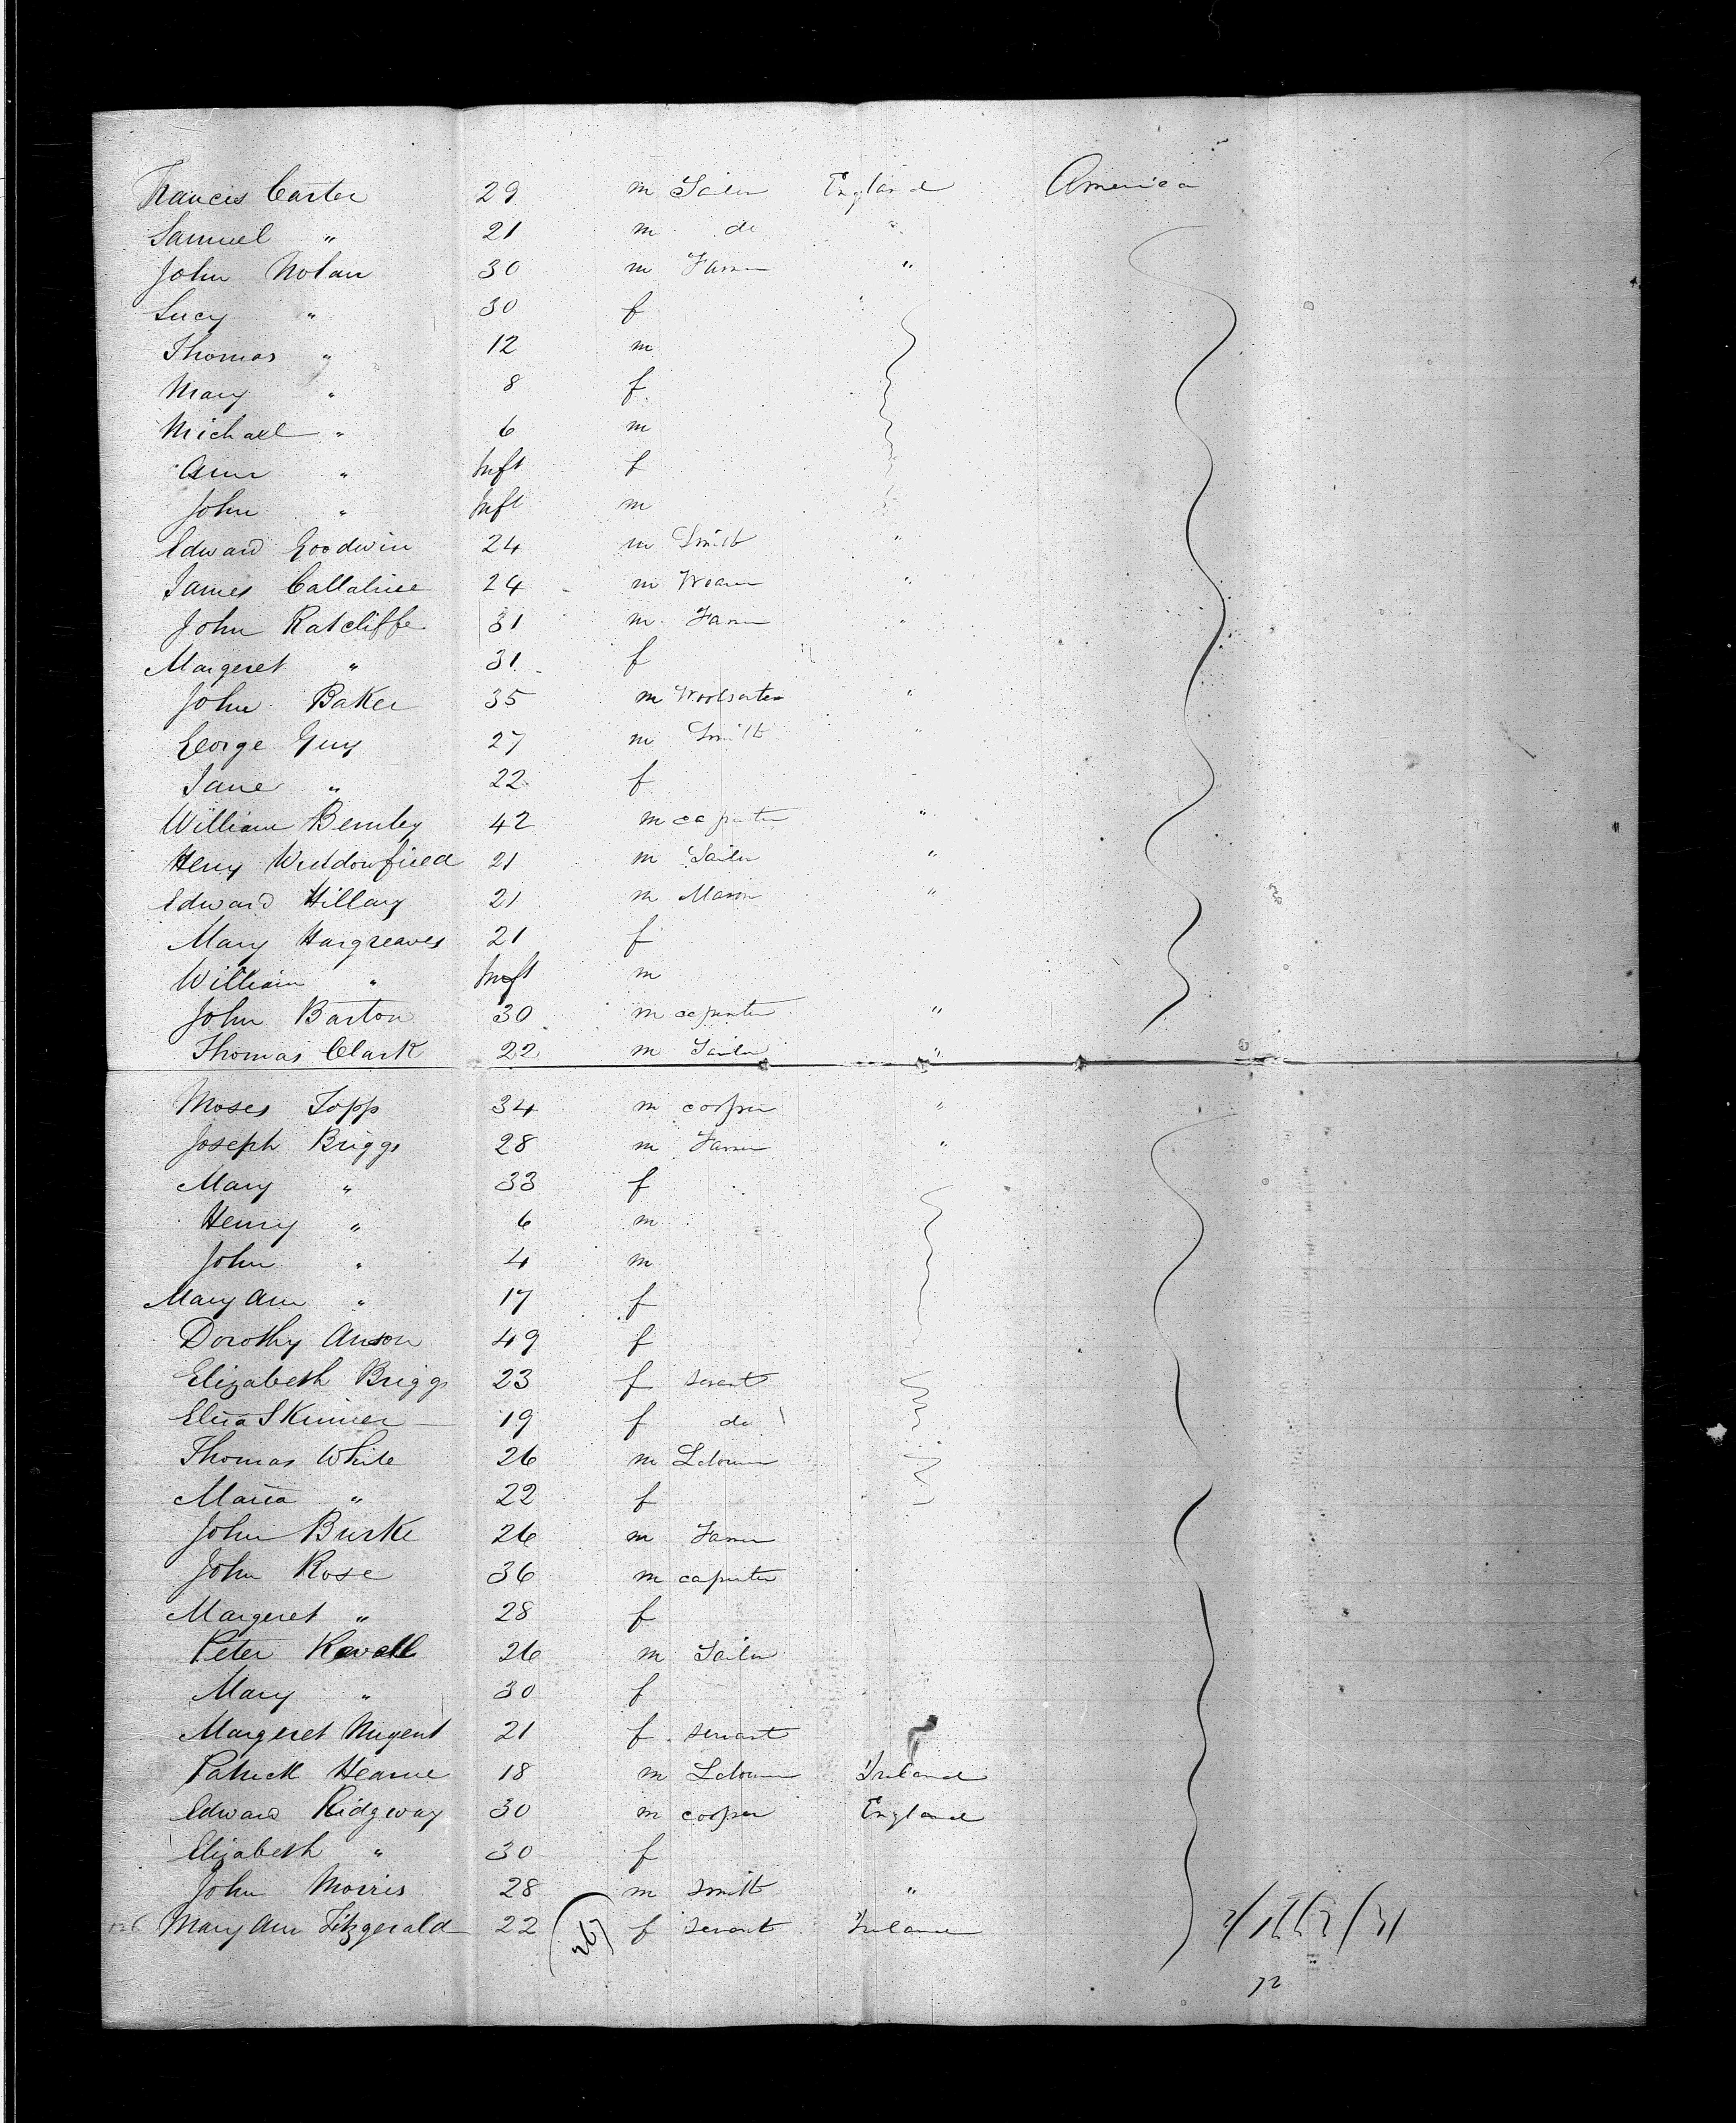 Francis Carter 29 m Tailor England America
Samuel " 21 m do "
John Nolan 30 m Farmer "
Lucy " 30 f
Thomas " 12 m
Mary " 8 f
Michael " 6 m
Ann " Inft f
John " Inft m
Edward Goodwin 24 m Smith "
James 24 m Weaver "
John Ratcliffe 31 m Farmer "
Margeret " 31 f
John Baker 35 m Woolsorter "
George Guy 27 m Smith "
Jane " 22 f
William Bemley 42 m carpenter "
Henry Widdowfield 21 m Tailor "
Edward Hillary 21 m Mason "
Mary Hargreaves 21 f
William " Inft m
John Barton 30 m carpenter "
Thomas Clark 22 m Tailor "
Moses Topp 34 m cooper "
Joseph Briggs 28 m Farmer "
Mary " 33 f
Henry " 6 m
John " 4 m
Mary Ann " 17 f
Dorothy Anson 49 f
Elizabeth Briggs 23 f servant
Eliza Skinner 19 f do
Thomas White 26 m Labourer
Maria " 22 f
John Burke 26 m Farmer
John Rose 36 m carpenter
Margeret " 28 f
Peter Kevall 26 m Tailor
Mary " 30 f
Margeret Nugent 21 f servant
Patrick Hearne 18 m Labourer Ireland
Edward Ridgway 30 m cooper England
Elizabeth " 30 f
John Morris 28 m Smith "
126 Mary Ann Fitzgerald 22 f servant Ireland